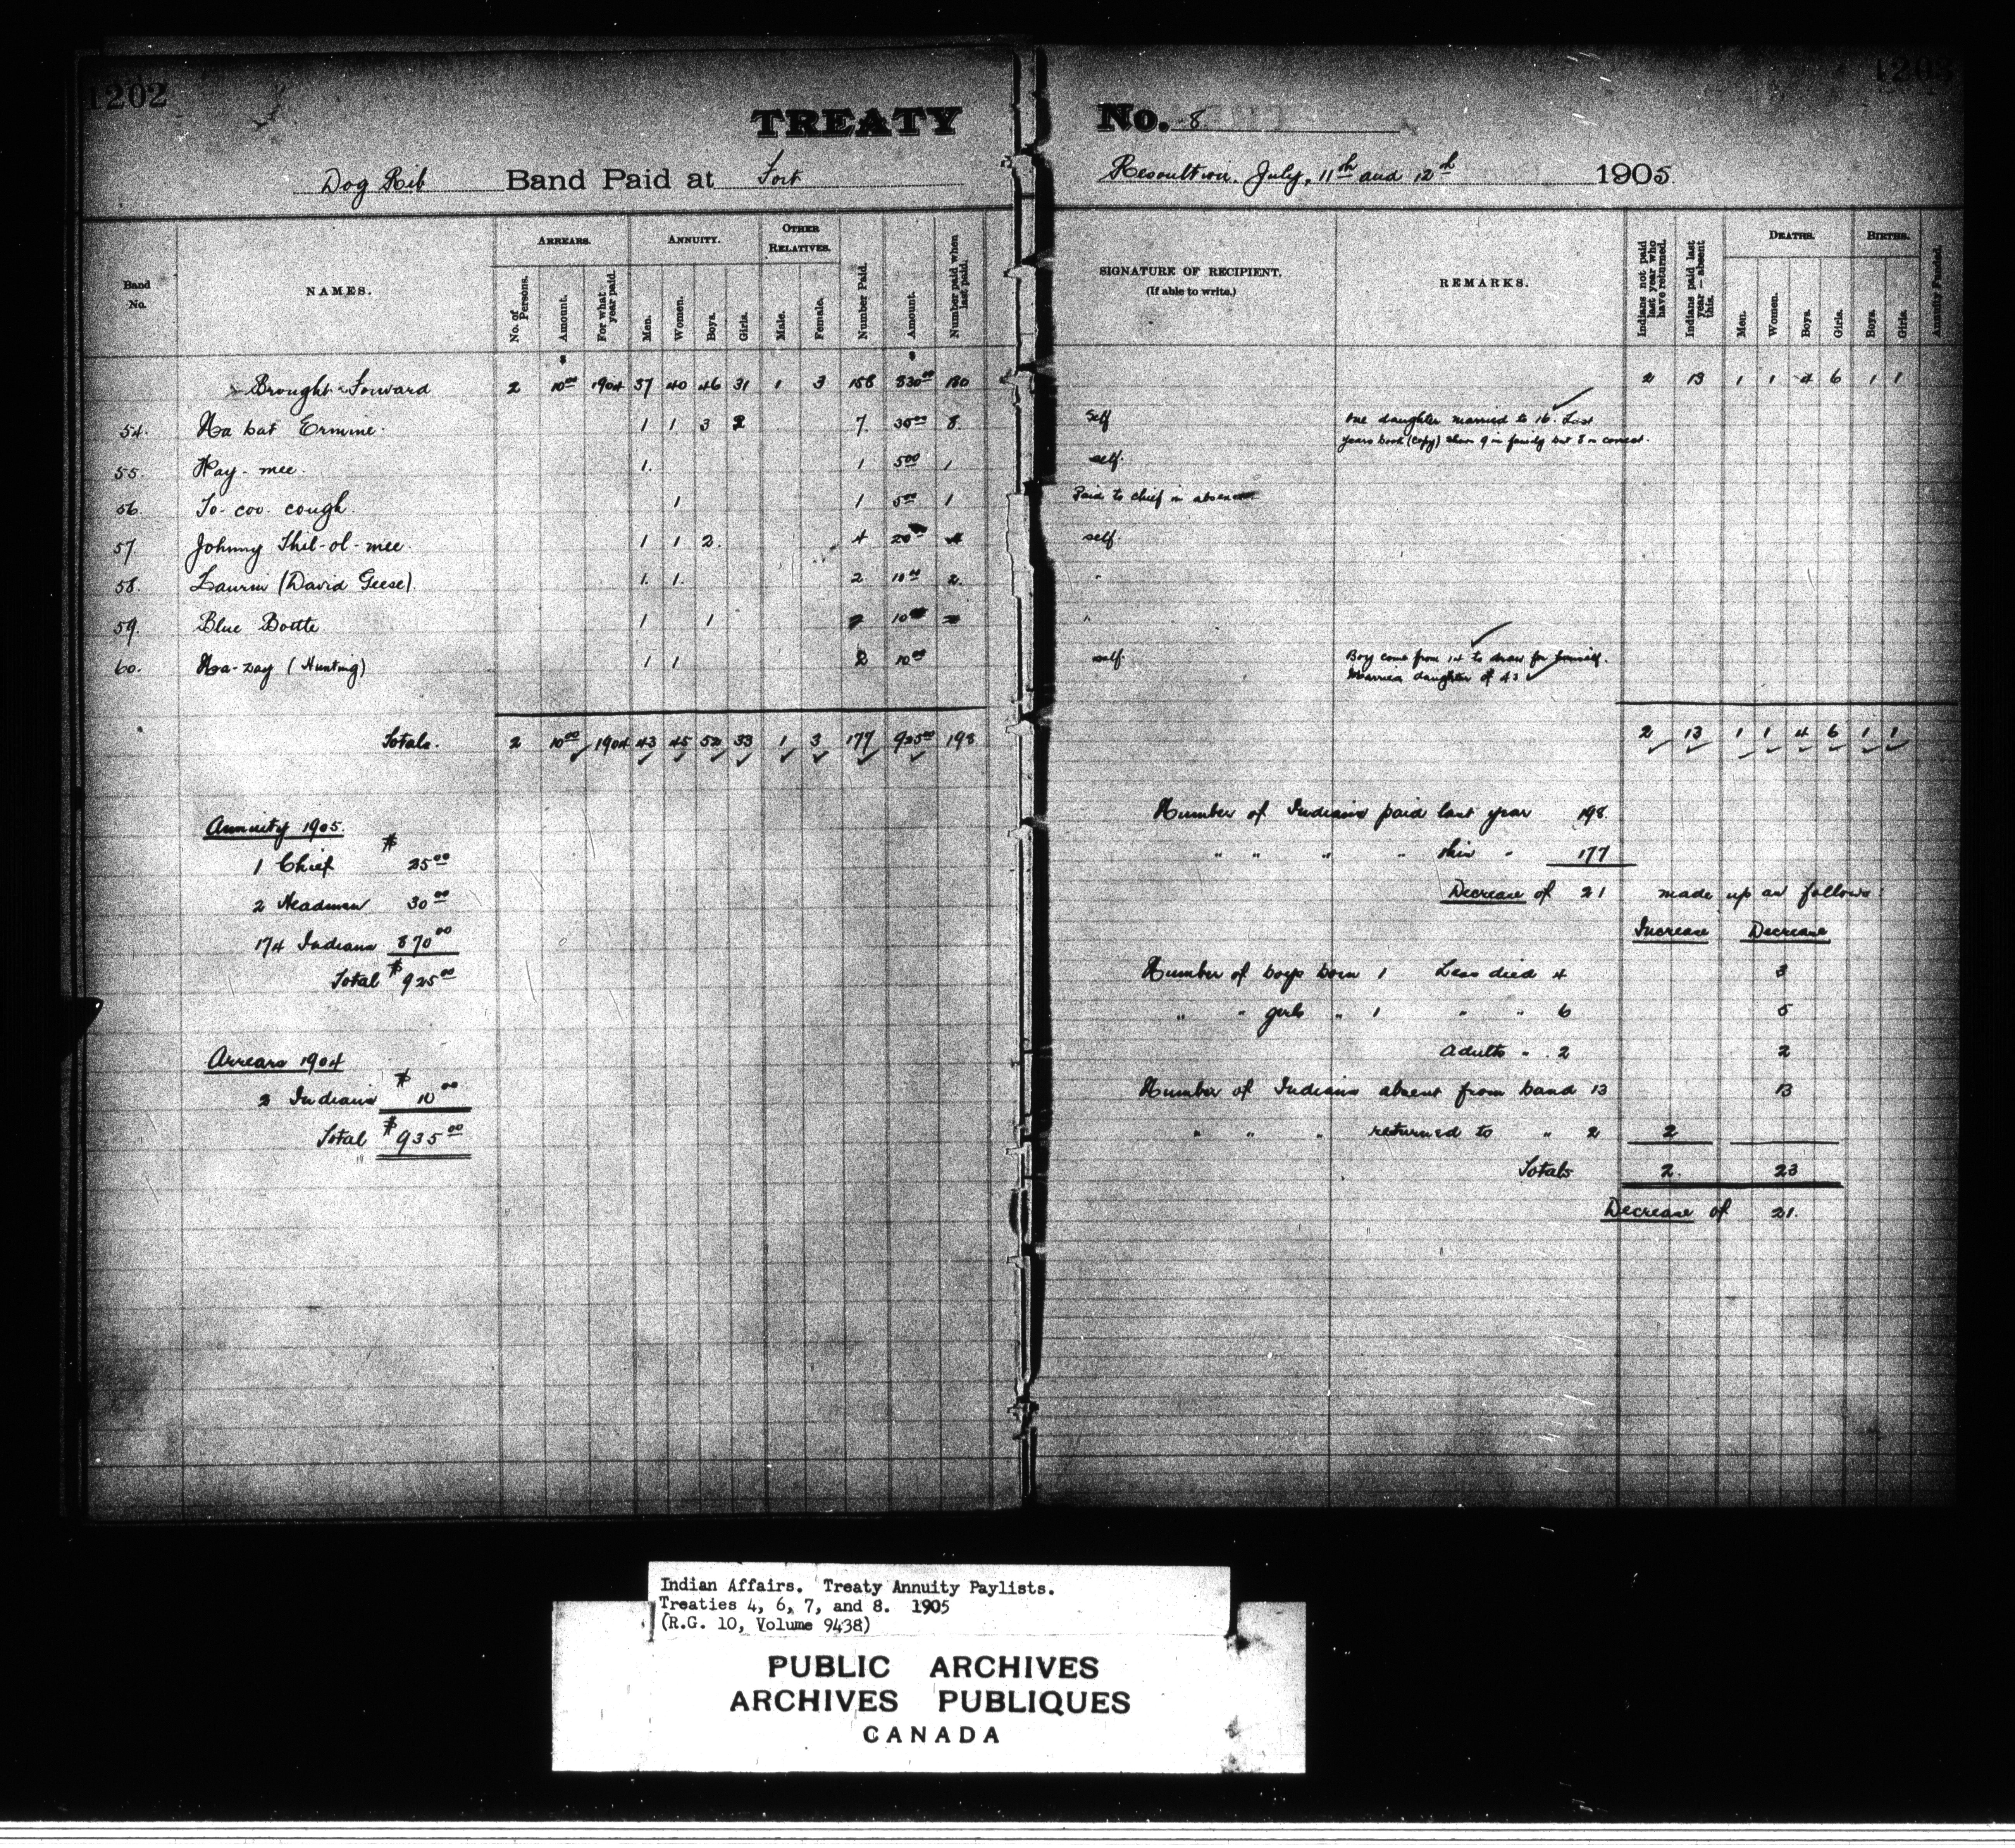 1202
1203
TREATY No. 8
Dog Rib Band Paid at Fort Resolution. July, 11th and 12th 1905
Band No.
NAMES.
ARREARS.
No. of Persons.
Amount.
For what year paid.
ANNUITY.
Men.
Women.
Boys.
Girls.
OTHER RELATIVES.
Male.
Female.
Number Paid.
Amount.
Number paid when last paid.
SIGNATURE OF RECIPIENT.
(If able to write.)
REMARKS.
Indians not paid last year who have returned.
Indians paid last year — absent this.
DEATHS.
Men.
Women.
Boys.
Girls.
BIRTHS.
Boys.
Girls.
Annuity Funded.
Brought Forward 2 10 00 1904 37 40 46 31 1 3 158 830 00 180 2 13 1 1 4 6 1 1
54. Na bat Ermine 1 1 3 2 7 30 00 8 self one daughter married to 16. Last
years book (copy) shows 9 in family but 8 is correct.
55. Hay-mee 1. 1 5 00 1 self.
56. To-coo-cough 1 1 5 00 1 Paid to chief in absence
57. Johnny Thel-ol-mee 1 1 2. 4 20 00 4 self.
58. Laurin (David Geese) 1. 1. 2 10 00 2 "
59. Blue Bottle 1 1 2 10 00 2 "
60. Na-zay (Hunting) 1 1 2 10 00 self. Boy come from 14 to draw for himself.
Married daughter of 43
Totals. 2 10 00 1904 43 45 52 33 1 3 177 925 00 198 2 13 1 1 4 6 1 1
Annuity 1905
1 Chief $ 25 00
2 Headmen 30 00
174 Indians 870 00
Total $ 925 00
Arrears 1904
2 Indians $ 10 00
Total $ 935 00
Number of Indians paid last year 198
" " " " this " 177
Decrease of 21 made up as follows:
Increase Decrease
Number of boys born 1 Less died 4 3
" " girls " 1 " " 6 5
Adults " 2 2
Number of Indians absent from band 13 13
" " " returned to " 2 2
Totals 2. 23
Decrease of 21.
Indian Affairs. Treaty Annuity Paylists.
Treaties 4, 6, 7, and 8. 1905
(R.G. 10, Volume 9438)
PUBLIC ARCHIVES
ARCHIVES PUBLIQUES
CANADA